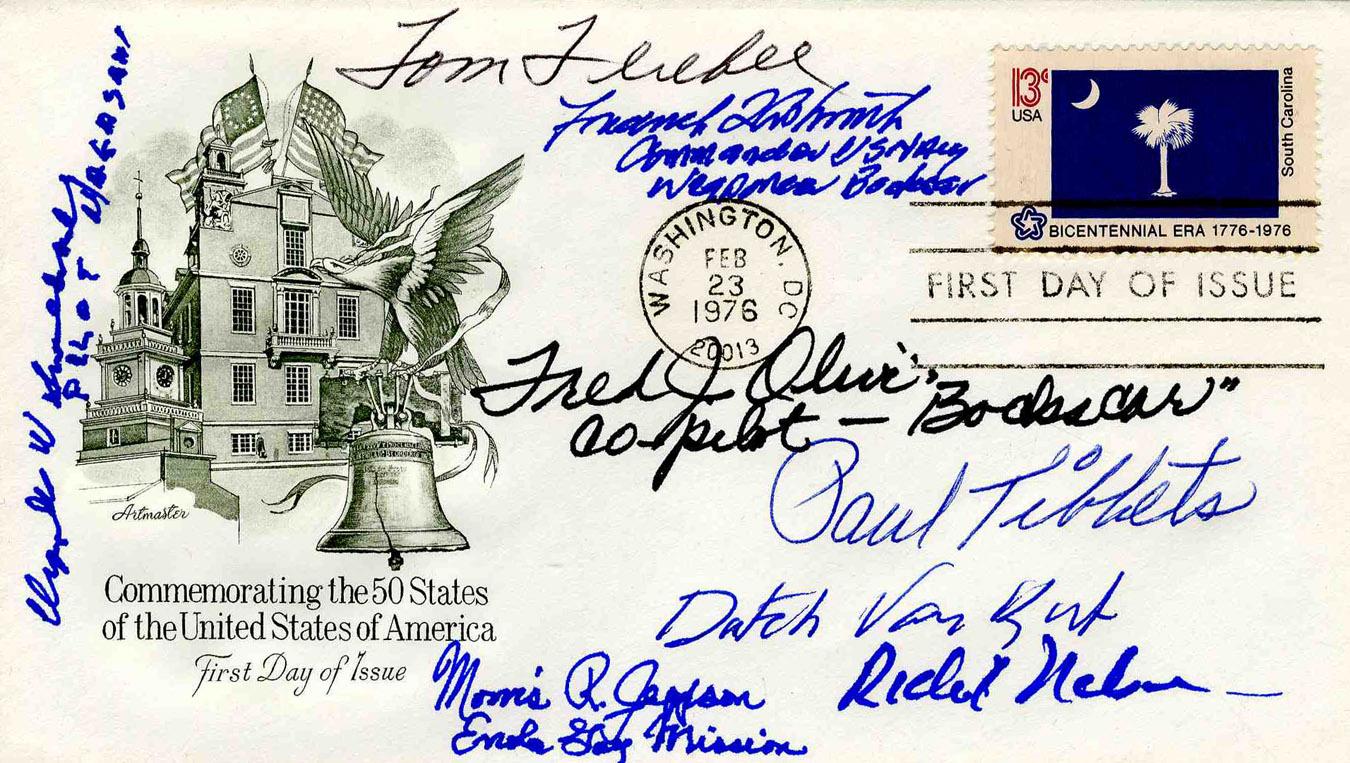 Tom Ferebee
Commander US Navy
Weaponeer Bockscar
13c
USA
South Carolina
BICENTENNIAL ERA 1776-1976
WASHINGTON, DC
FEB
23
1976
20013
FIRST DAY OF ISSUE
Fred J. Olivi
Co-pilot — "Bockscar"
Paul Tibbets
Dutch Van Kirk
Richard Nelson
Morris R. Jeppson
Enola Gay Mission
Pilot Nagasaki
Artmaster
Commemorating the 50 States
of the United States of America
First Day of Issue